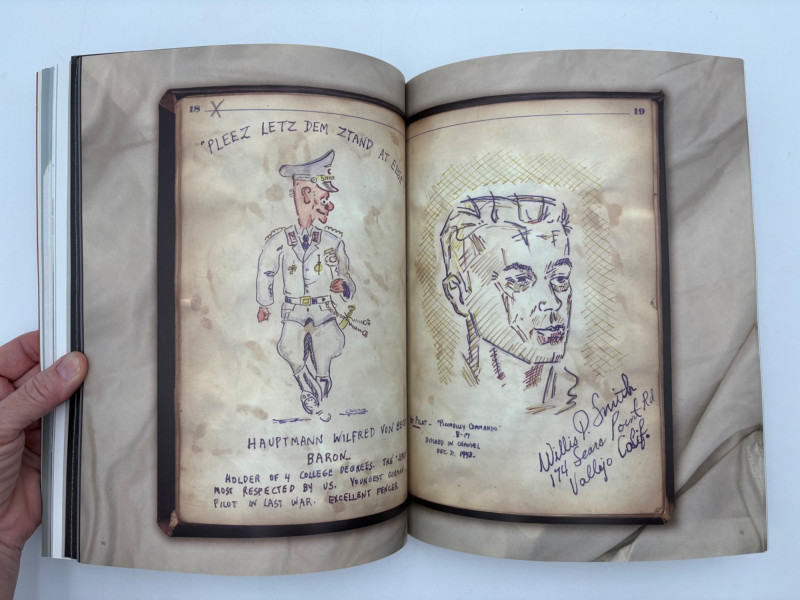 18 X
"PLEEZ LETZ DEM ZTAND AT
HAUPTMANN WILFRED VON
BARON
HOLDER OF 4 COLLEGE DEGREES. THE
MOST RESPECTED BY US. YOUNGEST
PILOT IN LAST WAR. EXCELLENT FENCER
19
PILOT - "PICCADILLY COMMANDO"
B-17
DITCHED IN CHANNEL
DEC. 31, 1943.
Willis P. Smith
174 Sears Point Rd
Vallejo Calif.